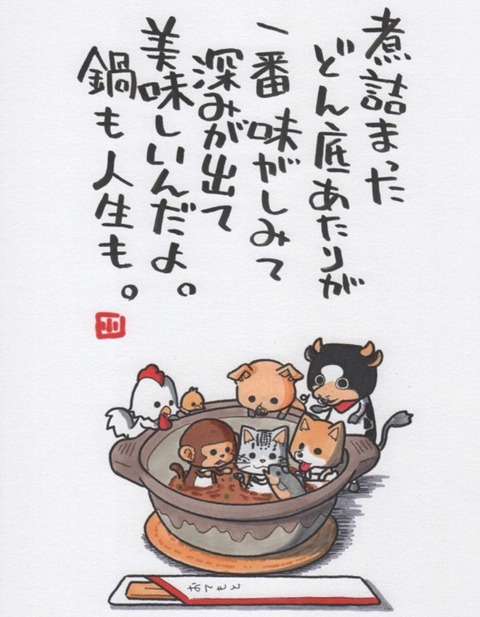 煮詰まった
どん底あたりが
一番 味がしみて
深みが出て
美味しいんだよ。
鍋も人生も。
おてもと